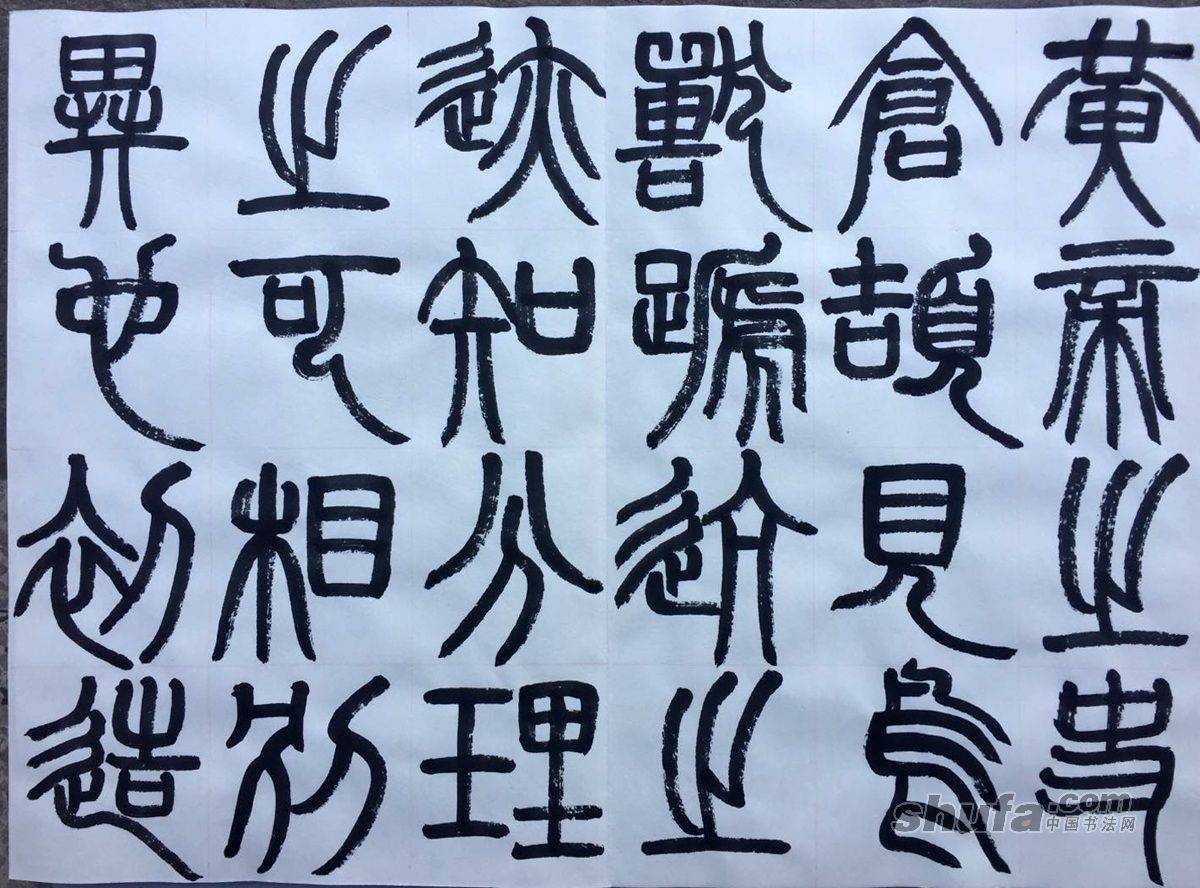 黃帝之史
倉頡見鳥
獸蹏迒之
迹知分理
之可相別
異也初造
shufa.com
中国书法网